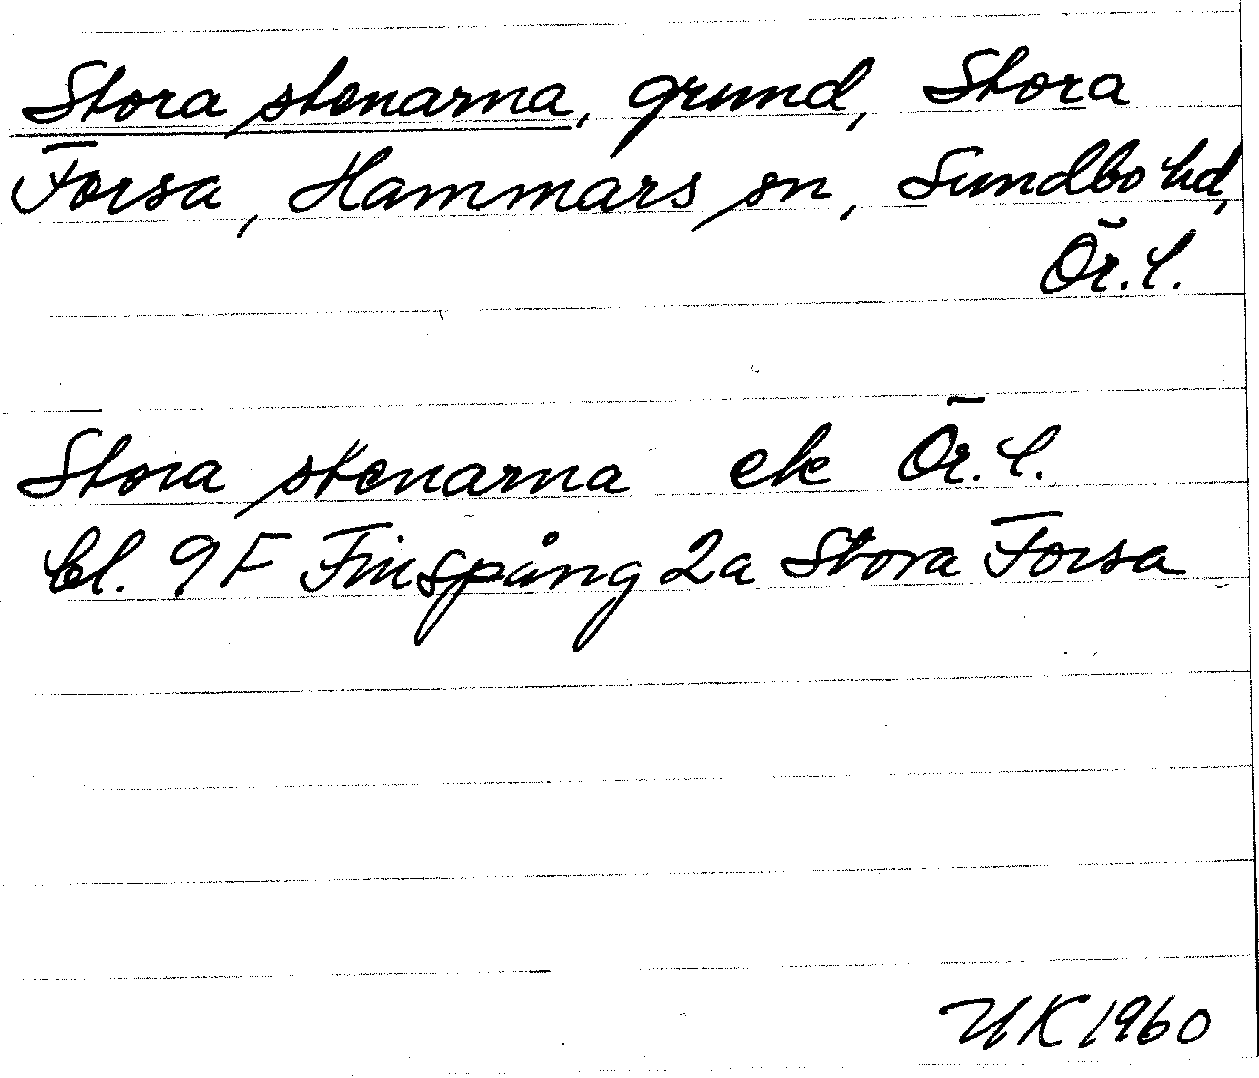 Stora stenarna, grund, Stora
Forsa, Hammars sn, Sundbo hd,
Ör.l.
Stora stenarna ek Ör.l.
bl. 9F Finspång 2a Stora Forsa
UK 1960